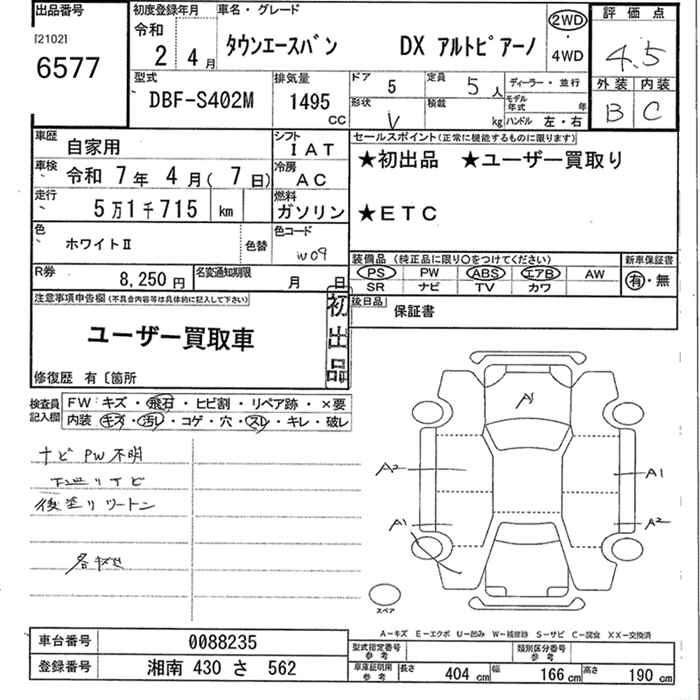 出品番号
[2102]
6577
初度登録年月
令和
2 4月
車名・グレード
タウンエースバン DX アルトピアーノ
2WD
・
4WD
評価点
4.5
外装 内装
B C
型式
DBF-S402M
排気量
1495
CC
ドア 5
定員 5人
ディーラー・並行
形状 V
積載 kg
モデル年式 年
ハンドル 左・右
車歴 自家用
シフト IAT
車検 令和 7年 4月( 7日)
冷房 AC
走行 5万1千715 km
燃料 ガソリン
色 ホワイトⅡ
色替
色コード W09
R券 8,250円
名変通知期限 月 日
セールスポイント(正常に機能するものに限ります)
★初出品 ★ユーザー買取り
★ETC
装備品(純正品に限り○をつけてください)
新車保証書
PS PW ABS エアB AW
SR ナビ TV カワ
有・無
後日品 保証書
注意事項申告欄(不具合内容等は具体的に記入して下さい)
ユーザー買取車
初出品
修復歴 有〔箇所
検査員記入欄
FW:キズ・飛石・ヒビ割・リペア跡・×要
内装:キズ・汚レ・コゲ・穴・スレ・キレ・破レ
ナビ PW 不明
下廻りサビ
後塗りツートン
A1
A2
A1
A1
A2
スペア
A-キズ E-エクボ U-凹み W-補修跡 S-サビ C-腐食 XX-交換済
車台番号 0088235
登録番号 湘南 430 さ 562
型式指定番号 参考
類別区分番号 参考
車庫証明用 参考
長さ 404 cm 幅 166 cm 高さ 190 cm